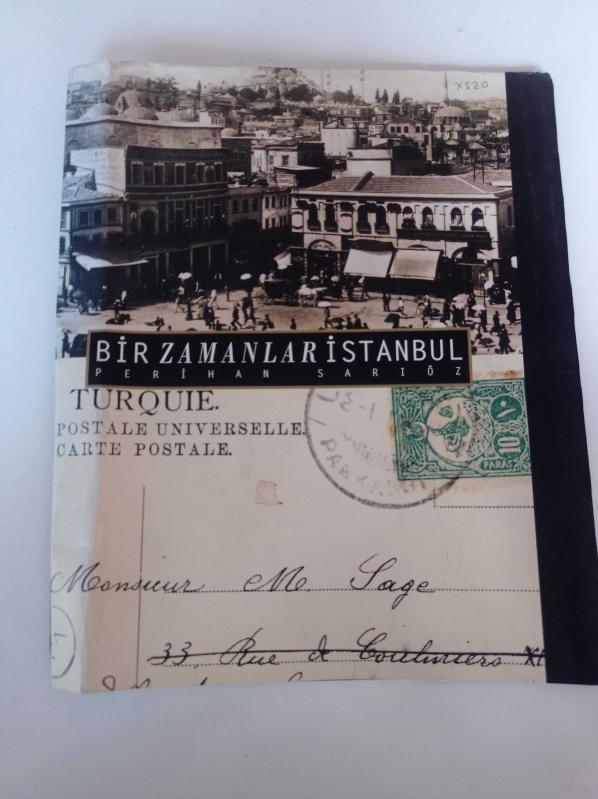 X520
BİR ZAMANLAR İSTANBUL
PERİHAN SARIÖZ
TURQUIE.
POSTALE UNIVERSELLE.
CARTE POSTALE.
10
١٠
PARAS
Monsieur M. Sage
33, Rue de Coulmiers